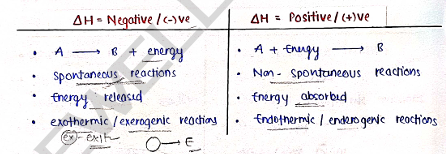 ΔH = Negative / (-)ve
ΔH = Positive / (+)ve
• A ⟶ B + energy
• A + Energy ⟶ B
• Spontaneous reactions
• Non - Spontaneous reactions
• Energy released
• Energy absorbed
• exothermic / exerogenic reactions
• Endothermic / enderogenic reactions
ex - exit
E